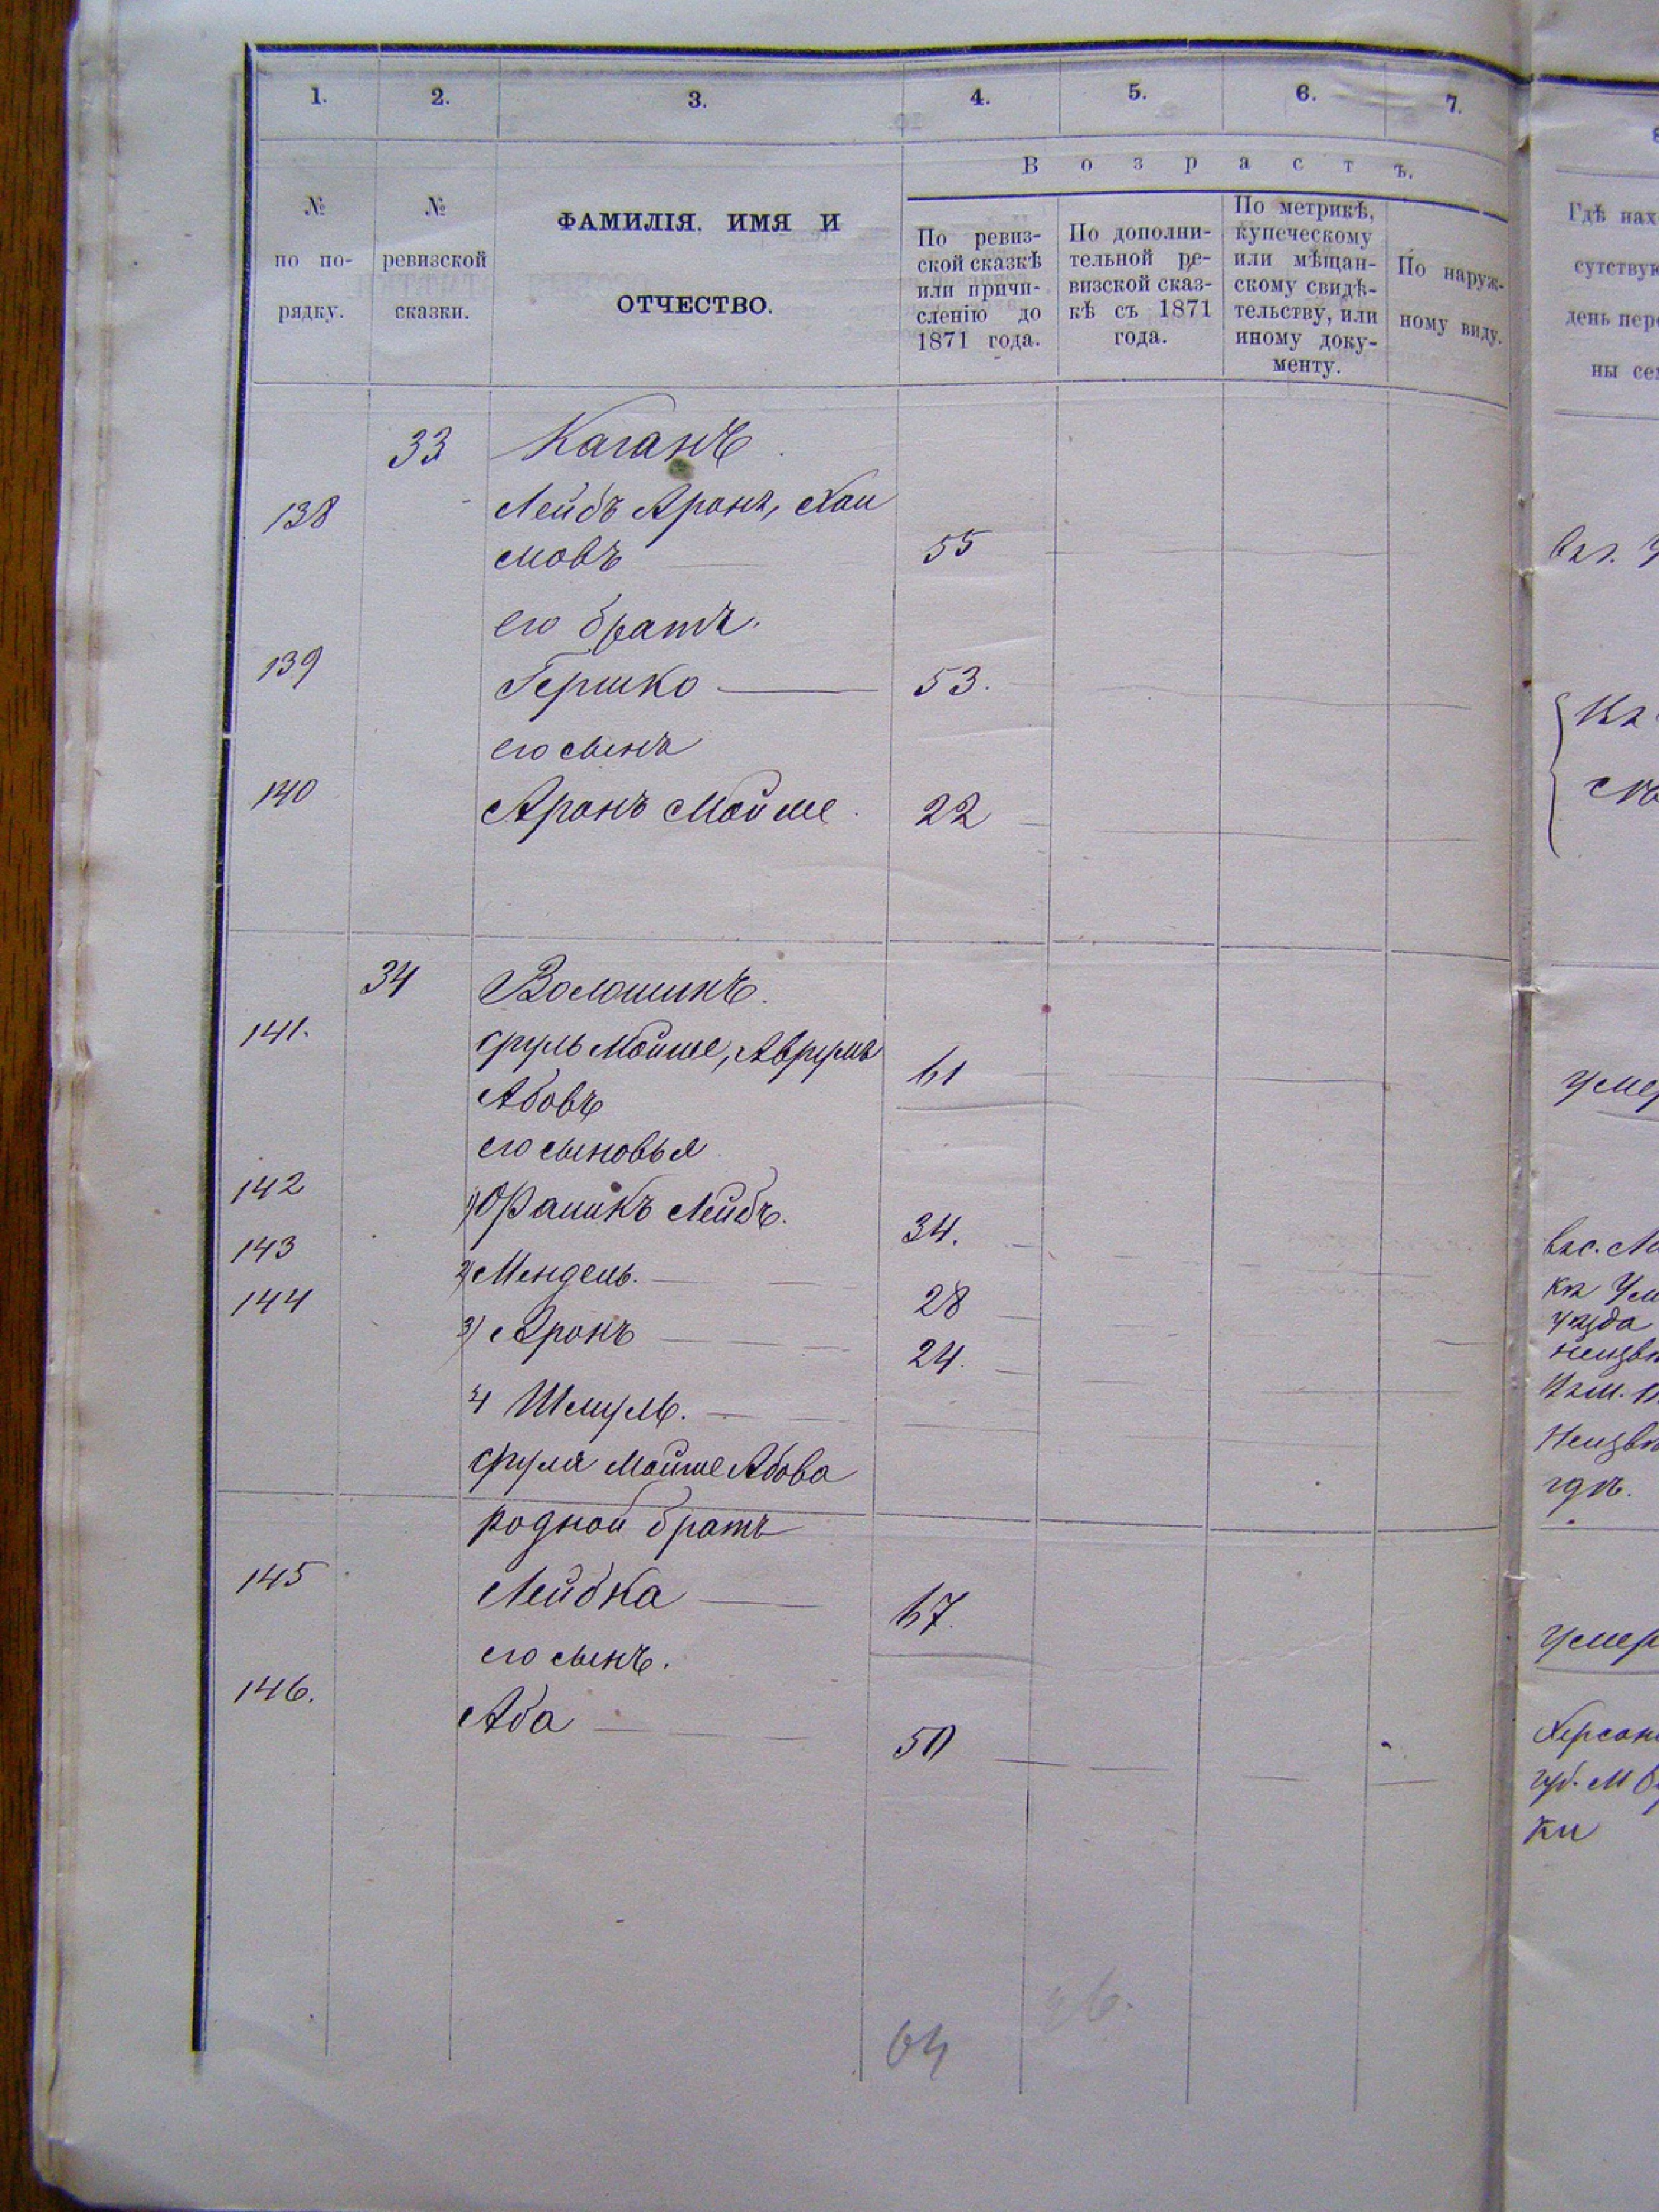 1. 2. 3. 4. 5. 6. 7.
Возрастъ.
№ по по-рядку.
№ ревизской сказки.
ФАМИЛІЯ. ИМЯ И
ОТЧЕСТВО.
По ревиз-
ской сказкѣ
или причи-
сленію до
1871 года.
По дополни-
тельной ре-
визской сказ-
кѣ съ 1871
года.
По метрикѣ,
купеческому
или мѣщан-
скому свидѣ-
тельству, или
иному доку-
менту.
По наруж-
ному виду.
Гдѣ нах
сутствую
день пер
ны се
33 Каганъ
138 Лейбъ Аронъ, Хаи
мовъ 55
его братъ.
139 Гершко 53.
его сынъ
140 Аронъ Мойше 22
34 Волошинъ.
141. Сруль Мойше, Аврумъ 61
Абовъ
его сыновья
142 1) Лейбъ. 34.
143 2) Мендель. 28
144 3) Аронъ 24.
4 Шмуль.
Сруля Мойше Абова
родной братъ
145 Лейбка 67.
его сынъ.
146. Аба 50
умер
уѣзда
гдѣ.
умер
Херсон
губ. М
ки
64